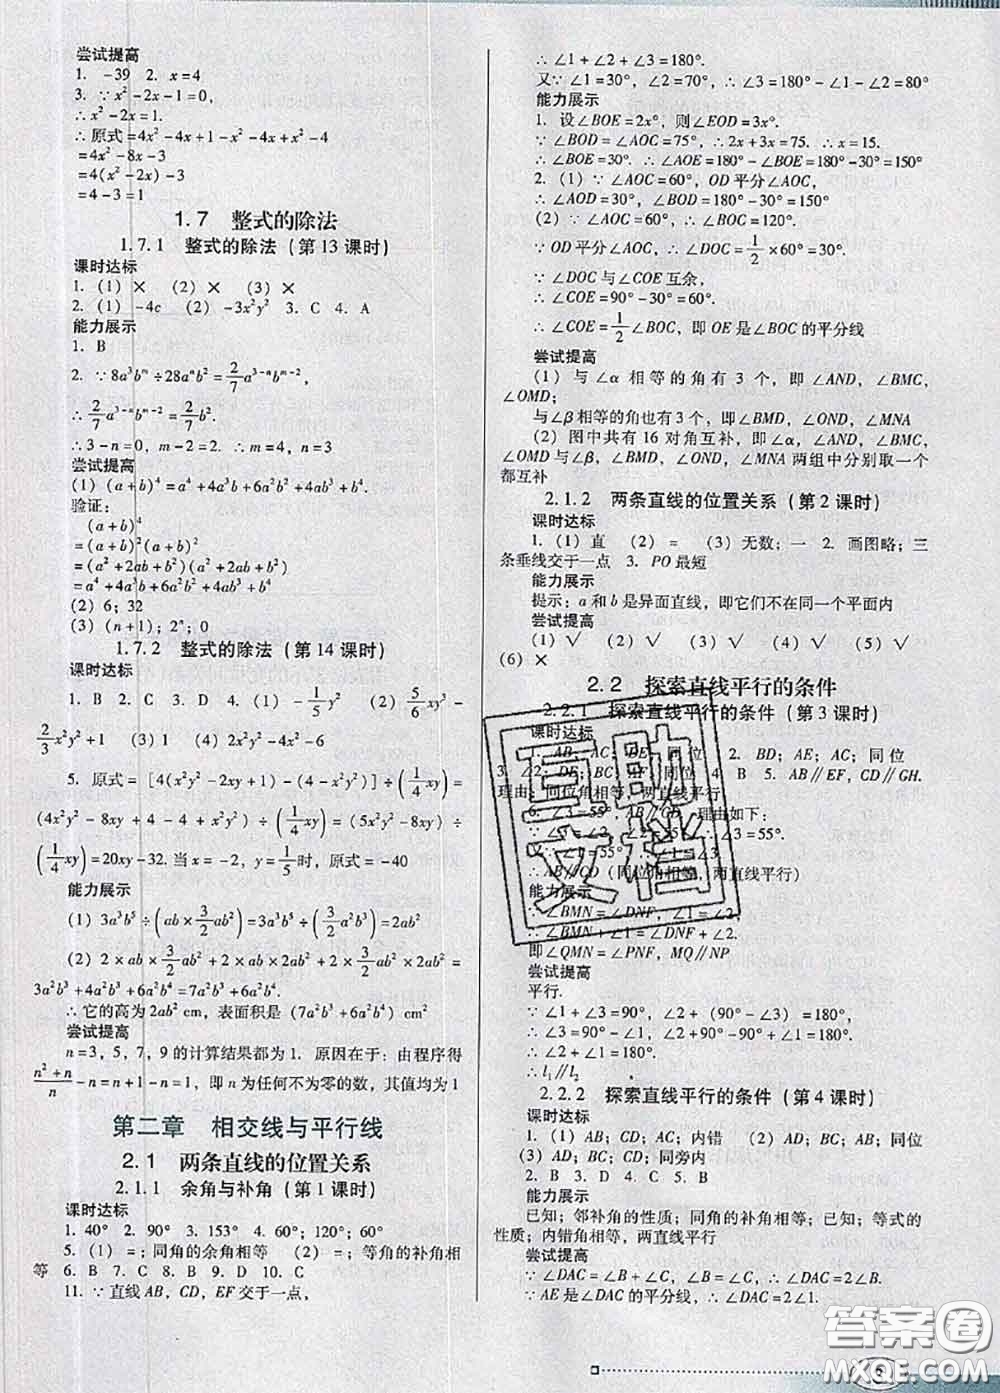 尝试提高
1. -39 2. x=4
3. ∵x²-2x-1=0,
∴x²-2x=1.
∴原式=4x²-4x+1-x²-4x+x²-4
=4x²-8x-3
=4(x²-2x)-3
=4-3=1
1.7 整式的除法
1.7.1 整式的除法(第13课时)
课时达标
1. (1) × (2) × (3) ×
2. (1) -4c (2) -3x²y² 3. C 4. A
能力展示
1. B
2. ∵8a³bᵐ÷28aⁿb²=2/7a³⁻ⁿbᵐ⁻²,
∴2/7a³⁻ⁿbᵐ⁻²=2/7b².
∴3-n=0, m-2=2. ∴m=4, n=3
尝试提高
(1) (a+b)⁴=a⁴+4a³b+6a²b²+4ab³+b⁴.
验证:
(a+b)⁴
=(a+b)²(a+b)²
=(a²+2ab+b²)(a²+2ab+b²)
=a⁴+4a³b+6a²b²+4ab³+b⁴
(2) 6; 32
(3) (n+1); 2ⁿ; 0
1.7.2 整式的除法(第14课时)
课时达标
1. B 2. C 3. D 4. (1) -1/5y² (2) 5/6xy³-
2/3x²y²+1 (3) 1 (4) 2x³-4x²-6
5. 原式=[4(x²y²-2xy+1)-(4-x²y²)]÷(1/4xy)=
(4x²y²-8xy+4-4+x²y²)÷(1/4xy)=(5x²y²-8xy)÷
(1/4xy)=20xy-32. 当x=-2, y=1/5时, 原式=-40
能力展示
(1) 3a³b⁵÷(ab×3/2ab²)=3a³b⁵÷(3/2a²b³)=2ab²
(2) 2×ab×3/2ab²+2×ab×2ab²+2×3/2ab²×2ab²=
3a²b³+4a²b³+6a²b⁴=7a²b³+6a²b⁴.
∴它的高为2ab² cm, 表面积是(7a²b³+6a²b⁴) cm²
尝试提高
n=3, 5, 7, 9的计算结果都为1. 原因在于:由程序得
n²+n/n-n=n+1-n=1, 即n为任何不为零的数, 其值均为1
第二章 相交线与平行线
2.1 两条直线的位置关系
2.1.1 余角与补角(第1课时)
课时达标
1. 40° 2. 90° 3. 153° 4. 60°; 120°; 60°
5. (1) =; 同角的余角相等 (2) =; 等角的补角相
等 6. B 7. C 8. B 9. D 10. C
11. ∵直线AB, CD, EF交于一点,
∴∠1+∠2+∠3=180°.
又∵∠1=30°, ∠2=70°, ∴∠3=180°-∠1-∠2=80°
能力展示
1. 设∠BOE=2x°, 则∠EOD=3x°.
∵∠BOD=∠AOC=75°, ∴2x+3x=75. ∴x=15.
∴∠BOE=30°. ∴∠AOE=180°-∠BOE=180°-30°=150°
2. (1) ∵∠AOC=60°, OD平分∠AOC,
∴∠AOD=30°. ∴∠BOD=180°-30°=150°
(2) ∵∠AOC=60°, ∴∠BOC=120°.
∵OD平分∠AOC, ∴∠DOC=1/2×60°=30°.
∵∠DOC与∠COE互余,
∴∠COE=90°-30°=60°.
∴∠COE=1/2∠BOC, 即OE是∠BOC的平分线
尝试提高
(1) 与∠α相等的角有3个, 即∠AND, ∠BMC,
∠OMD;
与∠β相等的角也有3个, 即∠BMD, ∠OND, ∠MNA
(2) 图中共有16对角互补, 即∠α, ∠AND, ∠BMC,
∠OMD与∠β, ∠BMD, ∠OND, ∠MNA两组中分别取一个
都互补
2.1.2 两条直线的位置关系(第2课时)
课时达标
1. (1) 直 (2) = (3) 无数; 一 2. 画图略; 三
条垂线交于一点 3. PO最短
能力展示
提示: a和b是异面直线, 即它们不在同一个平面内
尝试提高
(1) √ (2) √ (3) √ (4) √ (5) √
(6) ×
2.2 探索直线平行的条件
2.2.1 探索直线平行的条件(第3课时)
课时达标
1. AB; AC; DE; 同位 2. BD; AE; AC; 同位
3. ∠2; DE; BC; 同位 4. B 5. AB∥EF, CD∥GH.
理由: 同位角相等, 两直线平行
6. ∠3=55°, AB∥CD. 理由如下:
∵∠2=∠3, ∠2=55°, ∴∠3=55°.
又∵∠1=55°, ∴∠1=∠3.
∴AB∥CD(同位角相等, 两直线平行)
能力展示
∵∠BMN=∠DNF, ∠1=∠2,
∴∠BMN+∠1=∠DNF+∠2.
即∠QMN=∠PNF, MQ∥NP
尝试提高
平行.
∵∠1+∠3=90°, ∠2+(90°-∠3)=180°,
∴∠3=90°-∠1, ∠2+90°-90°+∠1=180°.
∴∠1+∠2=180°.
∴l₁∥l₂
2.2.2 探索直线平行的条件(第4课时)
课时达标
1. (1) AB; CD; AC; 内错 (2) AD; BC; AB; 同位
(3) AD; BC; CD; 同旁内
2. B 3. D 4. C 5. B
能力展示
已知; 邻补角的性质; 同角的补角相等; 已知; 等式的
性质; 内错角相等, 两直线平行
尝试提高
∵∠DAC=∠B+∠C, ∠B=∠C, ∴∠DAC=2∠B.
∵AE是∠DAC的平分线, ∴∠DAC=2∠1.
互助
文档
答案圈
MXQE.COM